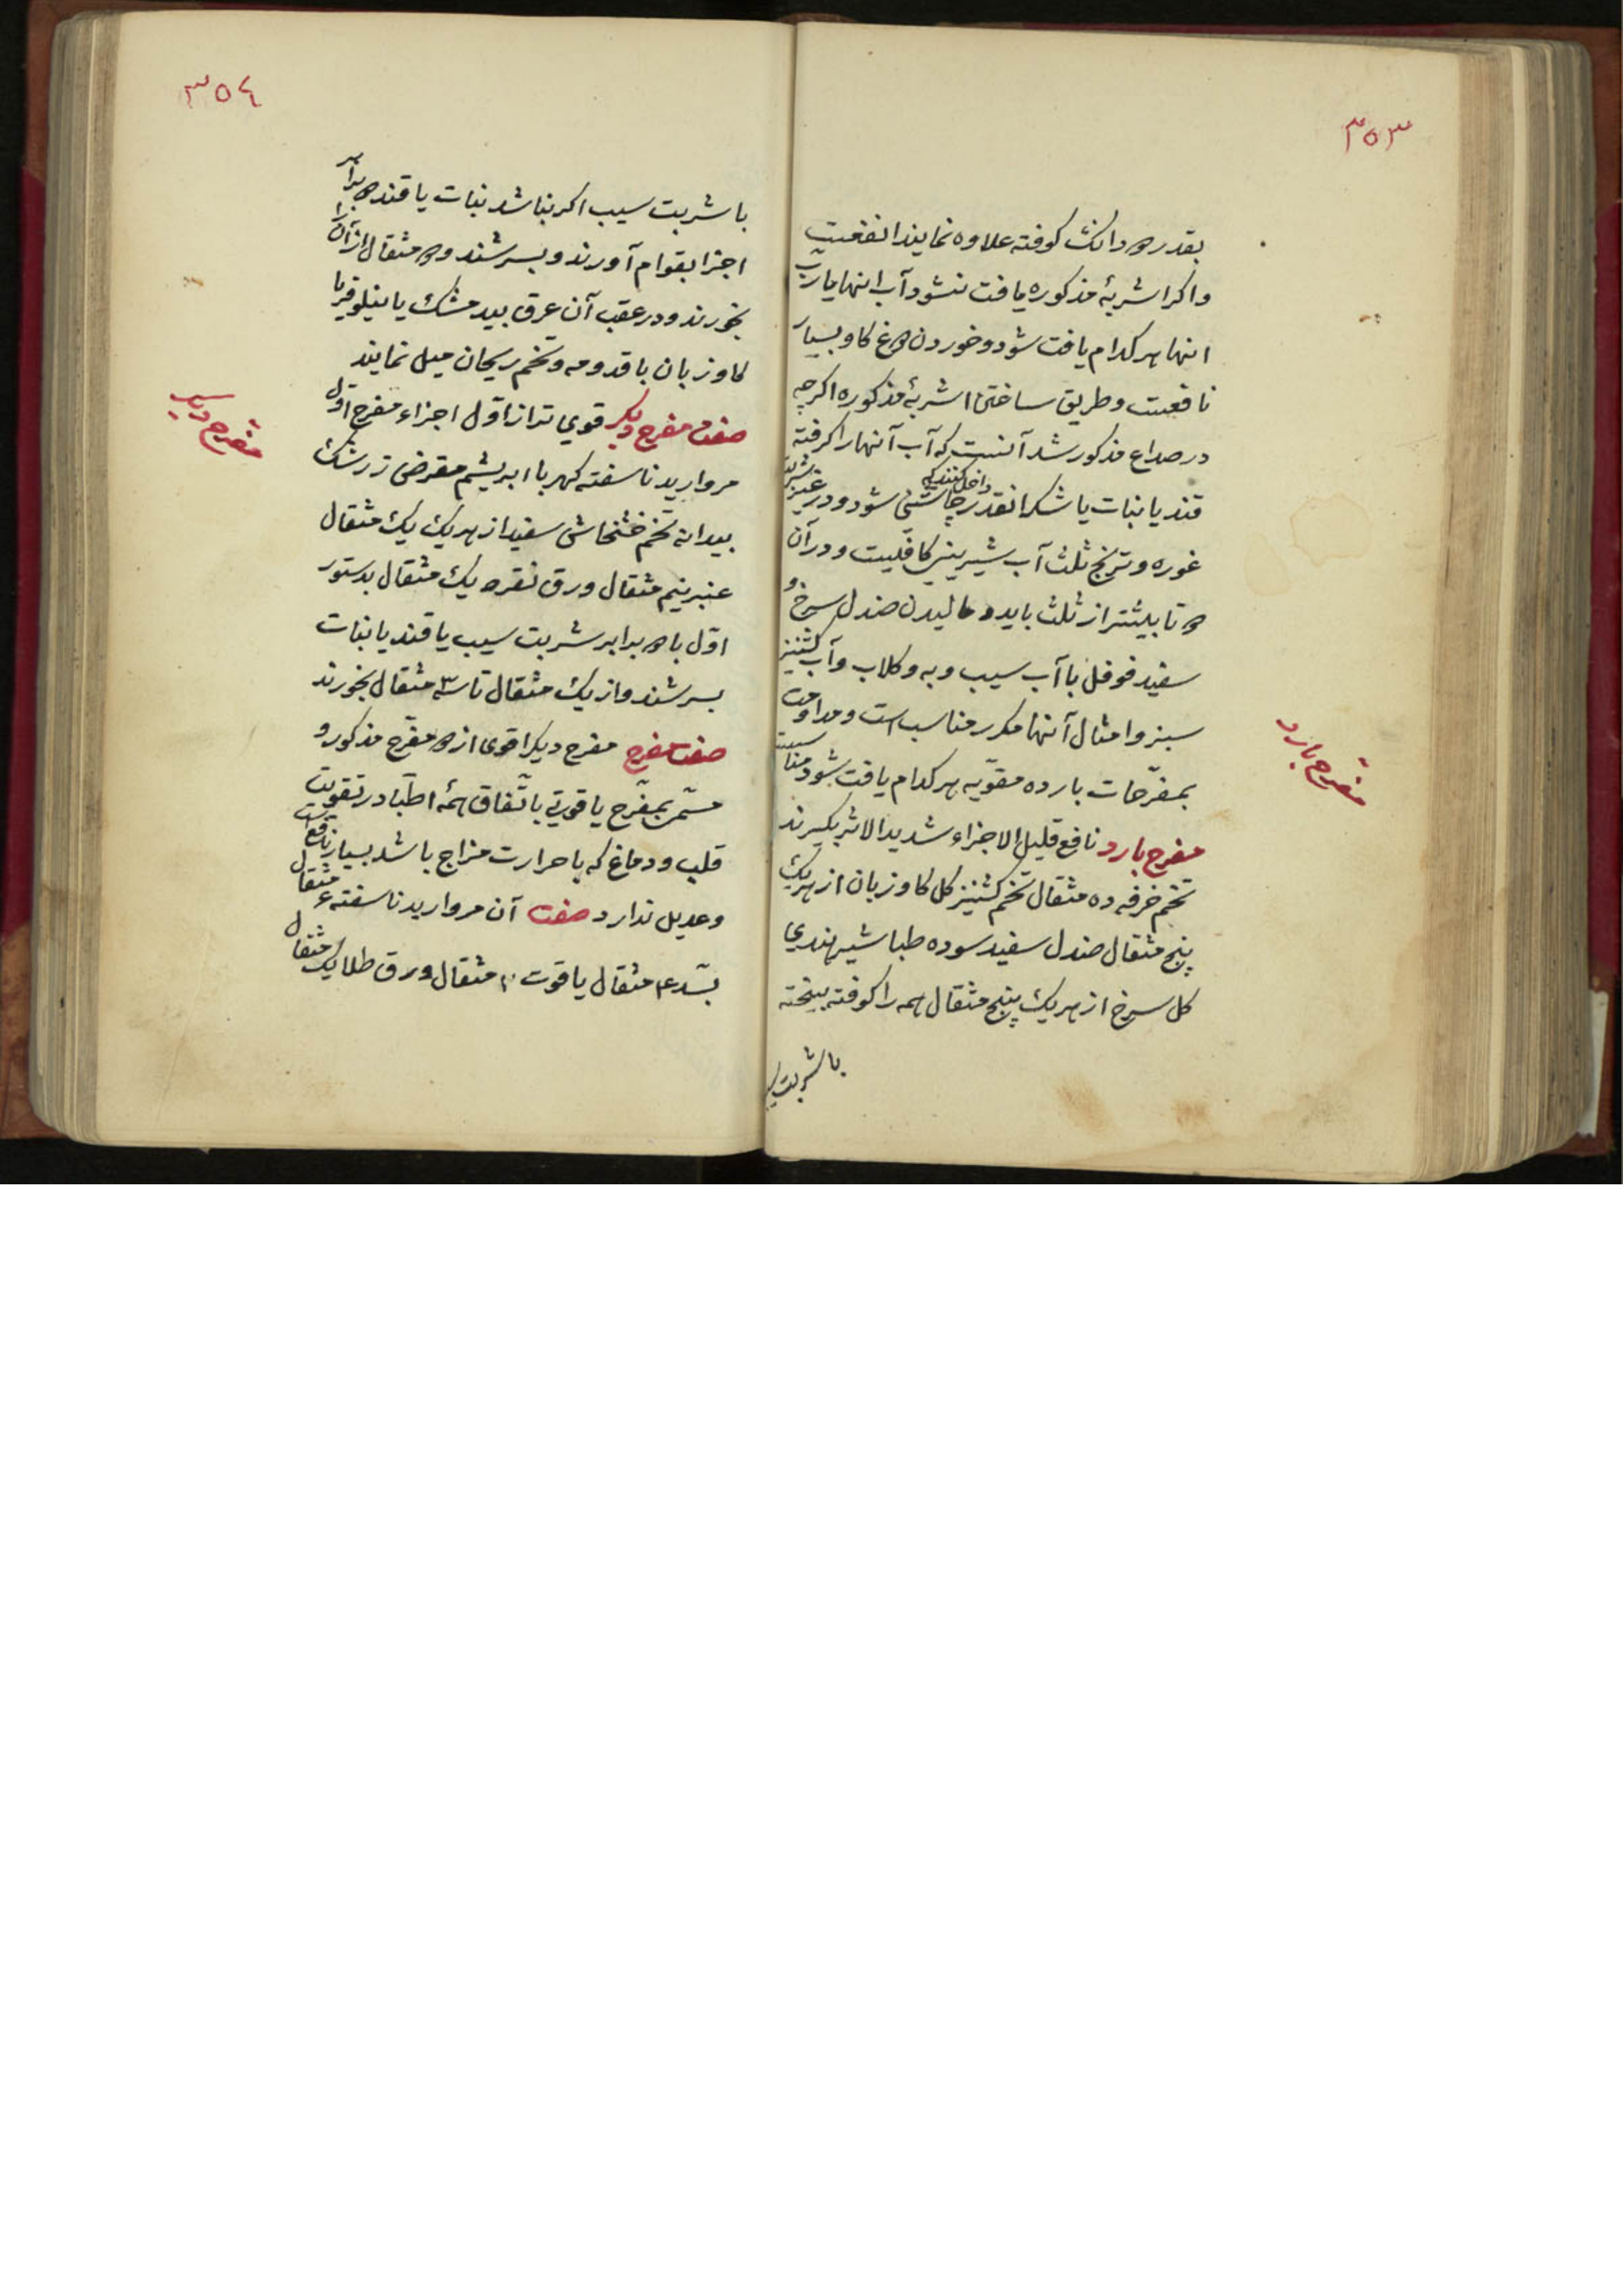 ۳۵۳
بقدر دو دانك كوفته علاوه نمايند انفعست
واكر اشربهٔ مذكوره يافت نشود آب انها يا رب
انها هر كدام يافت شود و خوردن دوغ كاو بسيار
نافعست وطريق ساختن اشربهٔ مذكوره اكرچه
در صداع مذكور شد آنست كه آب آنها را كرفته
قند يا نبات يا شكر انقدر داخل كنند كه چاشنی شود ودر غير شربت
غوره و ترنج ثلث آب شيرينی كافيست و در آن
دو تا بيشتر از ثلث بايد و ماليدن صندل سرخ و
سفيد فوفل با آب سيب و به و كلاب و آب كشنيز
سبز و امثال آنها مكرر مناسب است و مداومت
بمفرّحات بارده مقوّيه هر كدام يافت شود مناسبست
مفرح بارد نافع قليل الاجزاء شديد الاثر بكيرند
تخم خرفه ده مثقال تخم كشنيز كل كاوزبان از هر يك
پنج مثقال صندل سفيد سوده طباشير هندي
كل سرخ از هر يك پنج مثقال همه را كوفته بيخته
با شربت سيب
مفرح بارد
۳۵٤
با شربت سيب اكر نباشد نبات يا قند دو برابر
اجزا بقوام آورند و بسرشند و دو مثقال از آن را
بخورند و در عقب آن عرق بيد مشك يا نيلوفر يا
كاو زبان با قدومه و تخم ريحان ميل نمايند
صفت مفرح ديكر قوي تر از اوّل اجزاء مفرح اوّل
مرواريد ناسفته كهربا ابريشم مقرض زرشك
بيدانه تخم خشخاش سفيد از هر يك يك مثقال
عنبر نيم مثقال ورق نقره يك مثقال بدستور
اوّل با دو برابر شربت سيب يا قند يا نبات
بسرشند و از يك مثقال تا سه مثقال بخورند
صفت مفرح مفرح ديكر اقوی از دو مفرّح مذكور و
مسمّی بمفرّح ياقوتي باتّفاق همهٔ اطبّا در تقويت
قلب و دماغ كه با حرارت مزاج باشد بسيار نافع است
و عديل ندارد صفت آن مرواريد ناسفته ٤ مثقال
بسّد ۴ مثقال ياقوت ۲ مثقال ورق طلا يك مثقال
مفرح ديكر